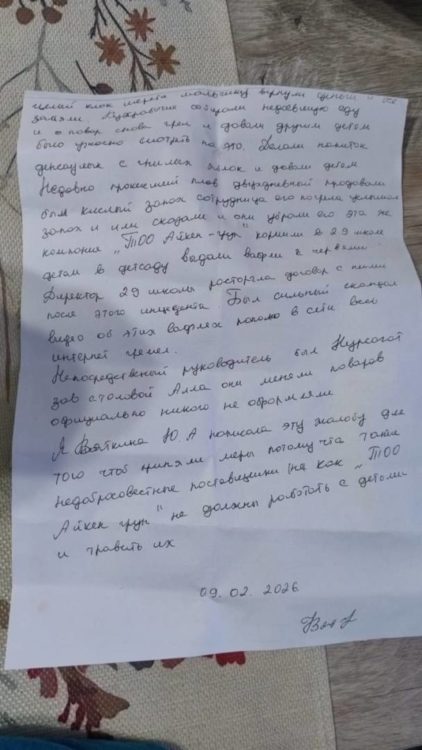 целый клок шерсти мальчику вернули деньги и все
замяли. Кухработник собирали недоевшую еду
и а повар снова грел и давали другим детям
было ужасно смотреть на это. Делали напиток
денсаулык с гнилых яблок и давали детям
Недавно прокисший плов двухдневной продавали
был кислый запах сотрудница его погрела услышал
запах и им сказали и они убрали его эта же
компания "ТОО Айкен-груп" кормили в 29 школе
детям в детсаду выдали вафли с червями.
Директор 29 школы расторгла договор с ними
после этого инцидента. Был сильный скандал
видео об этих вафлях попало в сети весь
интернет гремел.
Непосредственный руководитель был Нурсагат
зав столовой Алла они меняли поваров
официально никого не оформляли
Я Вяткина Ю.А написала эту жалобу для
того чтоб приняли меры потому что такие
недобрасовестные поставщики как "ТОО
Айкен груп" не должны работать с детьми
и травить их
09. 02. 2026